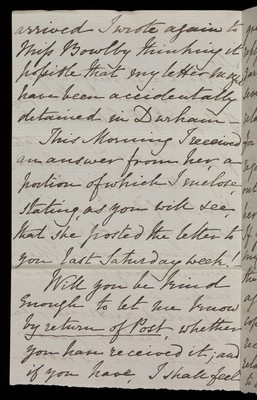 arrived I wrote again to
Miss Bowlby thinking it
possible that my letter might
have been accidentally
detained in Durham –
This Morning I received
an answer from her, a
portion of which I enclose,
stating, as you will see,
that she posted the letter to
you last Saturday week!
Will you be kind
enough to let me know
by return of Post, whether
you have received it; and
if you have, I shall feel